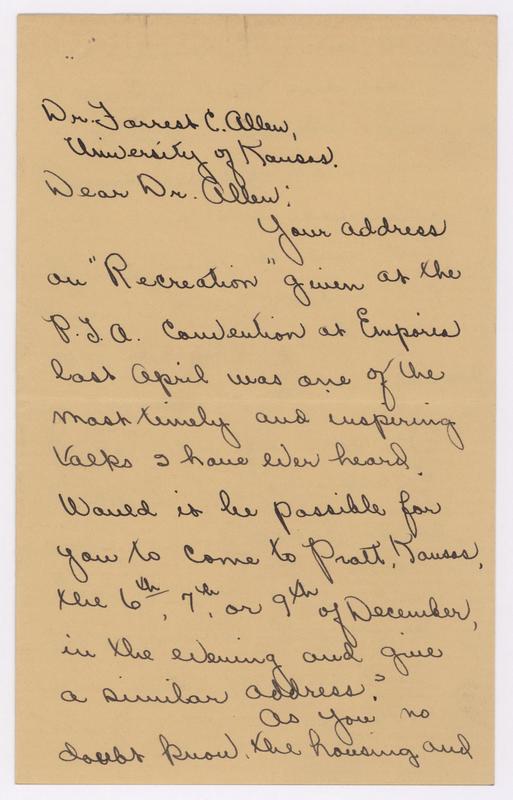 Dr. Forrest C. Allen,
University of Kansas.
Dear Dr. Allen:
Your address
on "Recreation" given at the
P.T.A. Convention at Emporia
last April was one of the
most timely and inspiring
talks I have ever heard.
Would it be possible for
you to come to Pratt, Kansas,
the 6th, 7th, or 9th of December,
in the evening and give
a similar address?
As you no
doubt know, the housing and